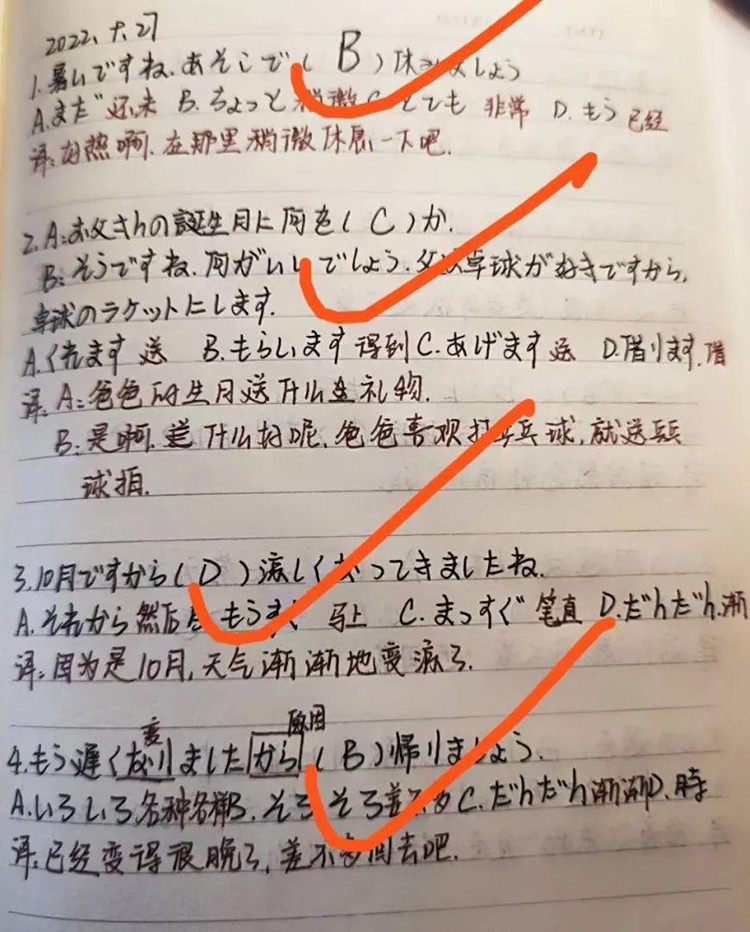 2022.十.27
1.暑いですね.あそこで( B )休みましょう
A.まだ 还未 B.ちょっと 稍微 C とても 非常 D.もう 已经
译:好热啊.在那里稍微休息一下吧.
2.A:お父さんの誕生日に何を( C )か.
B:そうですね.何がいいでしょう.父は卓球が好きですから,
卓球のラケットにします.
A.くれます 送 B.もらいます 得到 C.あげます 送 D.借ります.借
译:A:爸爸的生日送什么礼物.
B:是啊.送什么好呢.爸爸喜欢打乒乓球,就送乒乓
球拍.
3.10月ですから( D )涼しくなってきましたね.
A.それから 然后 もうすぐ 马上 C.まっすぐ 笔直 D.だんだん.渐
译:因为是10月,天气渐渐地变凉了.
变 原因
4.もう遅くなりましたから( B )帰りましょう.
A.いろいろ各种各样B.そろそろ差不多C.だんだん渐渐D.時
译:已经变得很晚了,差不多回去吧.